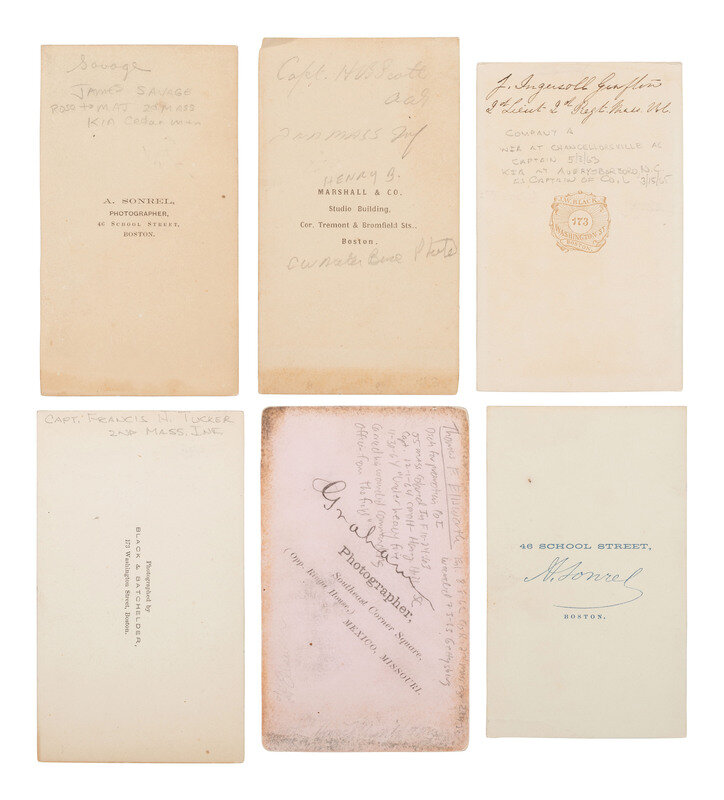 Savage
JAMES SAVAGE
ROSE to MAJ 2nd MASS
KIA Cedar
A. SONREL,
PHOTOGRAPHER,
46 SCHOOL STREET,
BOSTON.
Capt. H B Scott
2nd MASS Inf
HENRY B.
MARSHALL & CO.
Studio Building,
Cor. Tremont & Bromfield Sts.,
Boston.
J. Ingersoll Grafton
2d Lieut 2d Regt. Mass. Vol.
COMPANY
WIA AT CHANCELLORSVILLE AS
CAPTAIN 5/3/63
KIA AT AVERYSBORO N.C
AS CAPTAIN OF CO. 3/15/65
J.W. BLACK
173
WASHINGTON ST
BOSTON
CAPT. FRANCIS H. TUCKER
2ND MASS. INF
Photographed by
BLACK & BATCHELDER,
173 Washington Street, Boston.
Thomas F. Ellsworth
55 mass
wounded Gettysburg
Carried his wounded
Officer from the field
Graham
Photographer,
Southeast Corner Square.
(Opp. Ringo House.)
MEXICO, MISSOURI.
46 SCHOOL STREET,
A. Sonrel
BOSTON.